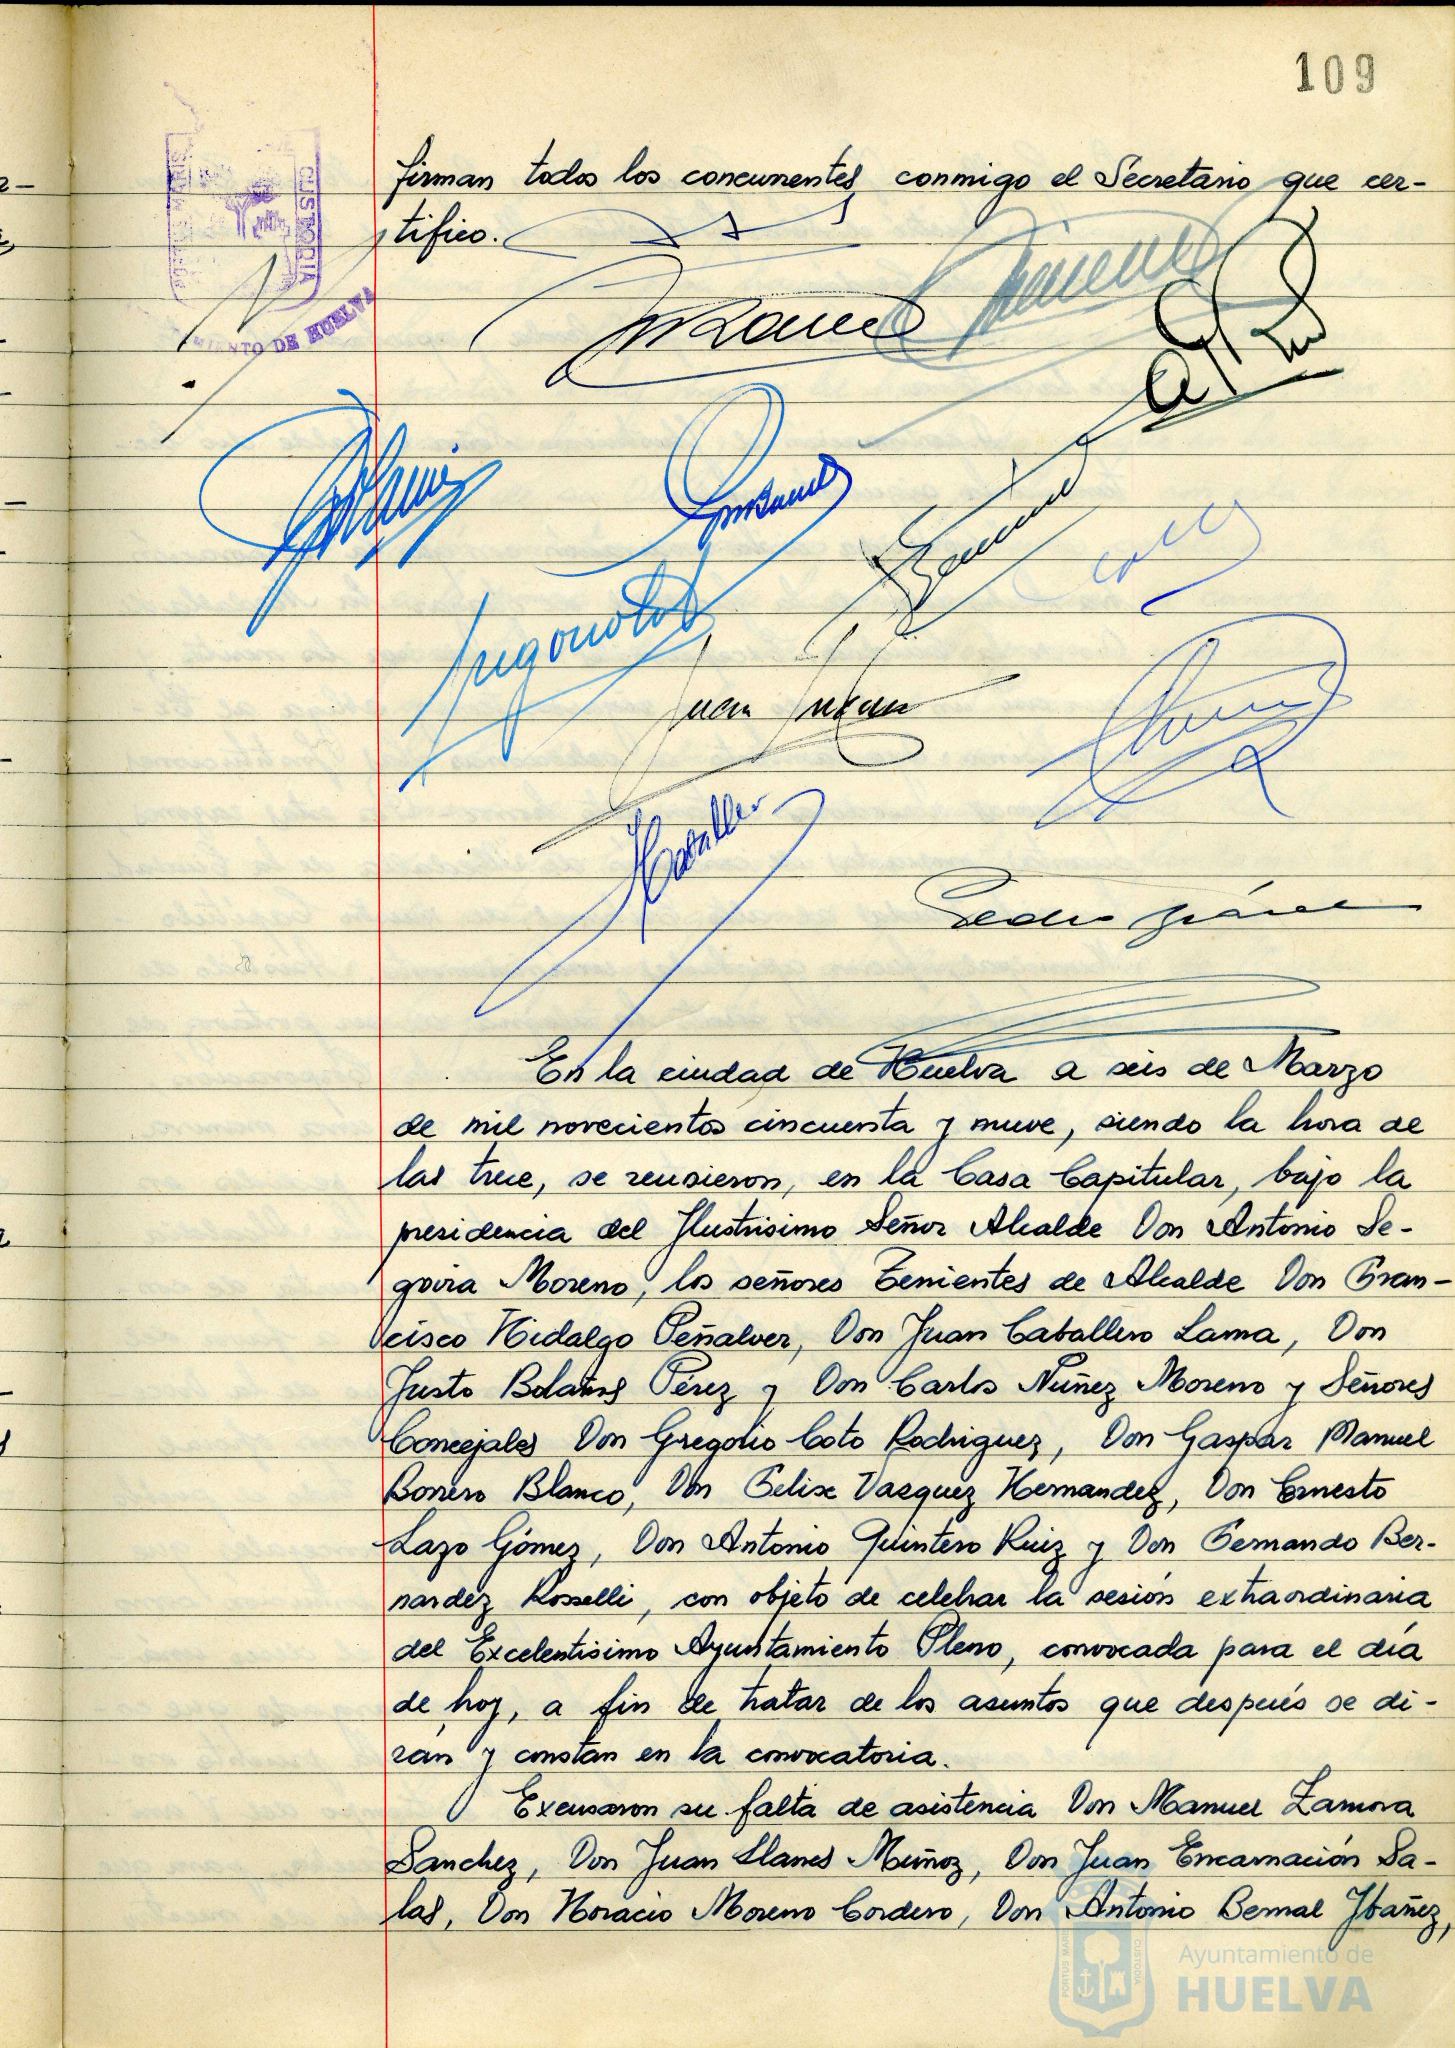 109
PORTUS MARIS
CUSTODIA
MIENTO DE HUELVA
firman todos los concurrentes, conmigo el Secretario que cer-
tifico.
Juan
Caballero
Pedro
En la ciudad de Huelva a seis de Marzo
de mil novecientos cincuenta y nueve, siendo la hora de
las trece, se reunieron, en la Casa Capitular, bajo la
presidencia del Ilustrisimo Señor Alcalde Don Antonio Se-
govia Moreno, los señores Tenientes de Alcalde Don Fran-
cisco Hidalgo Peñalver, Don Juan Caballero Lama, Don
Justo Bolaños Pérez y Don Carlos Núñez Moreno y Señores
Concejales Don Gregorio Coto Rodriguez, Don Gaspar Manuel
Borrero Blanco, Don Felix Vazquez Hernandez, Don Ernesto
Lazo Gómez, Don Antonio Quintero Ruiz y Don Fernando Ber-
nardez Rosselli, con objeto de celebrar la sesión extraordinaria
del Excelentisimo Ayuntamiento Pleno, convocada para el día
de hoy, a fin de tratar de los asuntos que después se di-
rán y constan en la convocatoria.
Excusaron su falta de asistencia Don Manuel Zamora
Sanchez, Don Juan Llanes Muñoz, Don Juan Encarnación Sa-
las, Don Horacio Moreno Cordero, Don Antonio Bernal Ybañez,
PORTUS MARIS
CUSTODIA
Ayuntamiento de
HUELVA